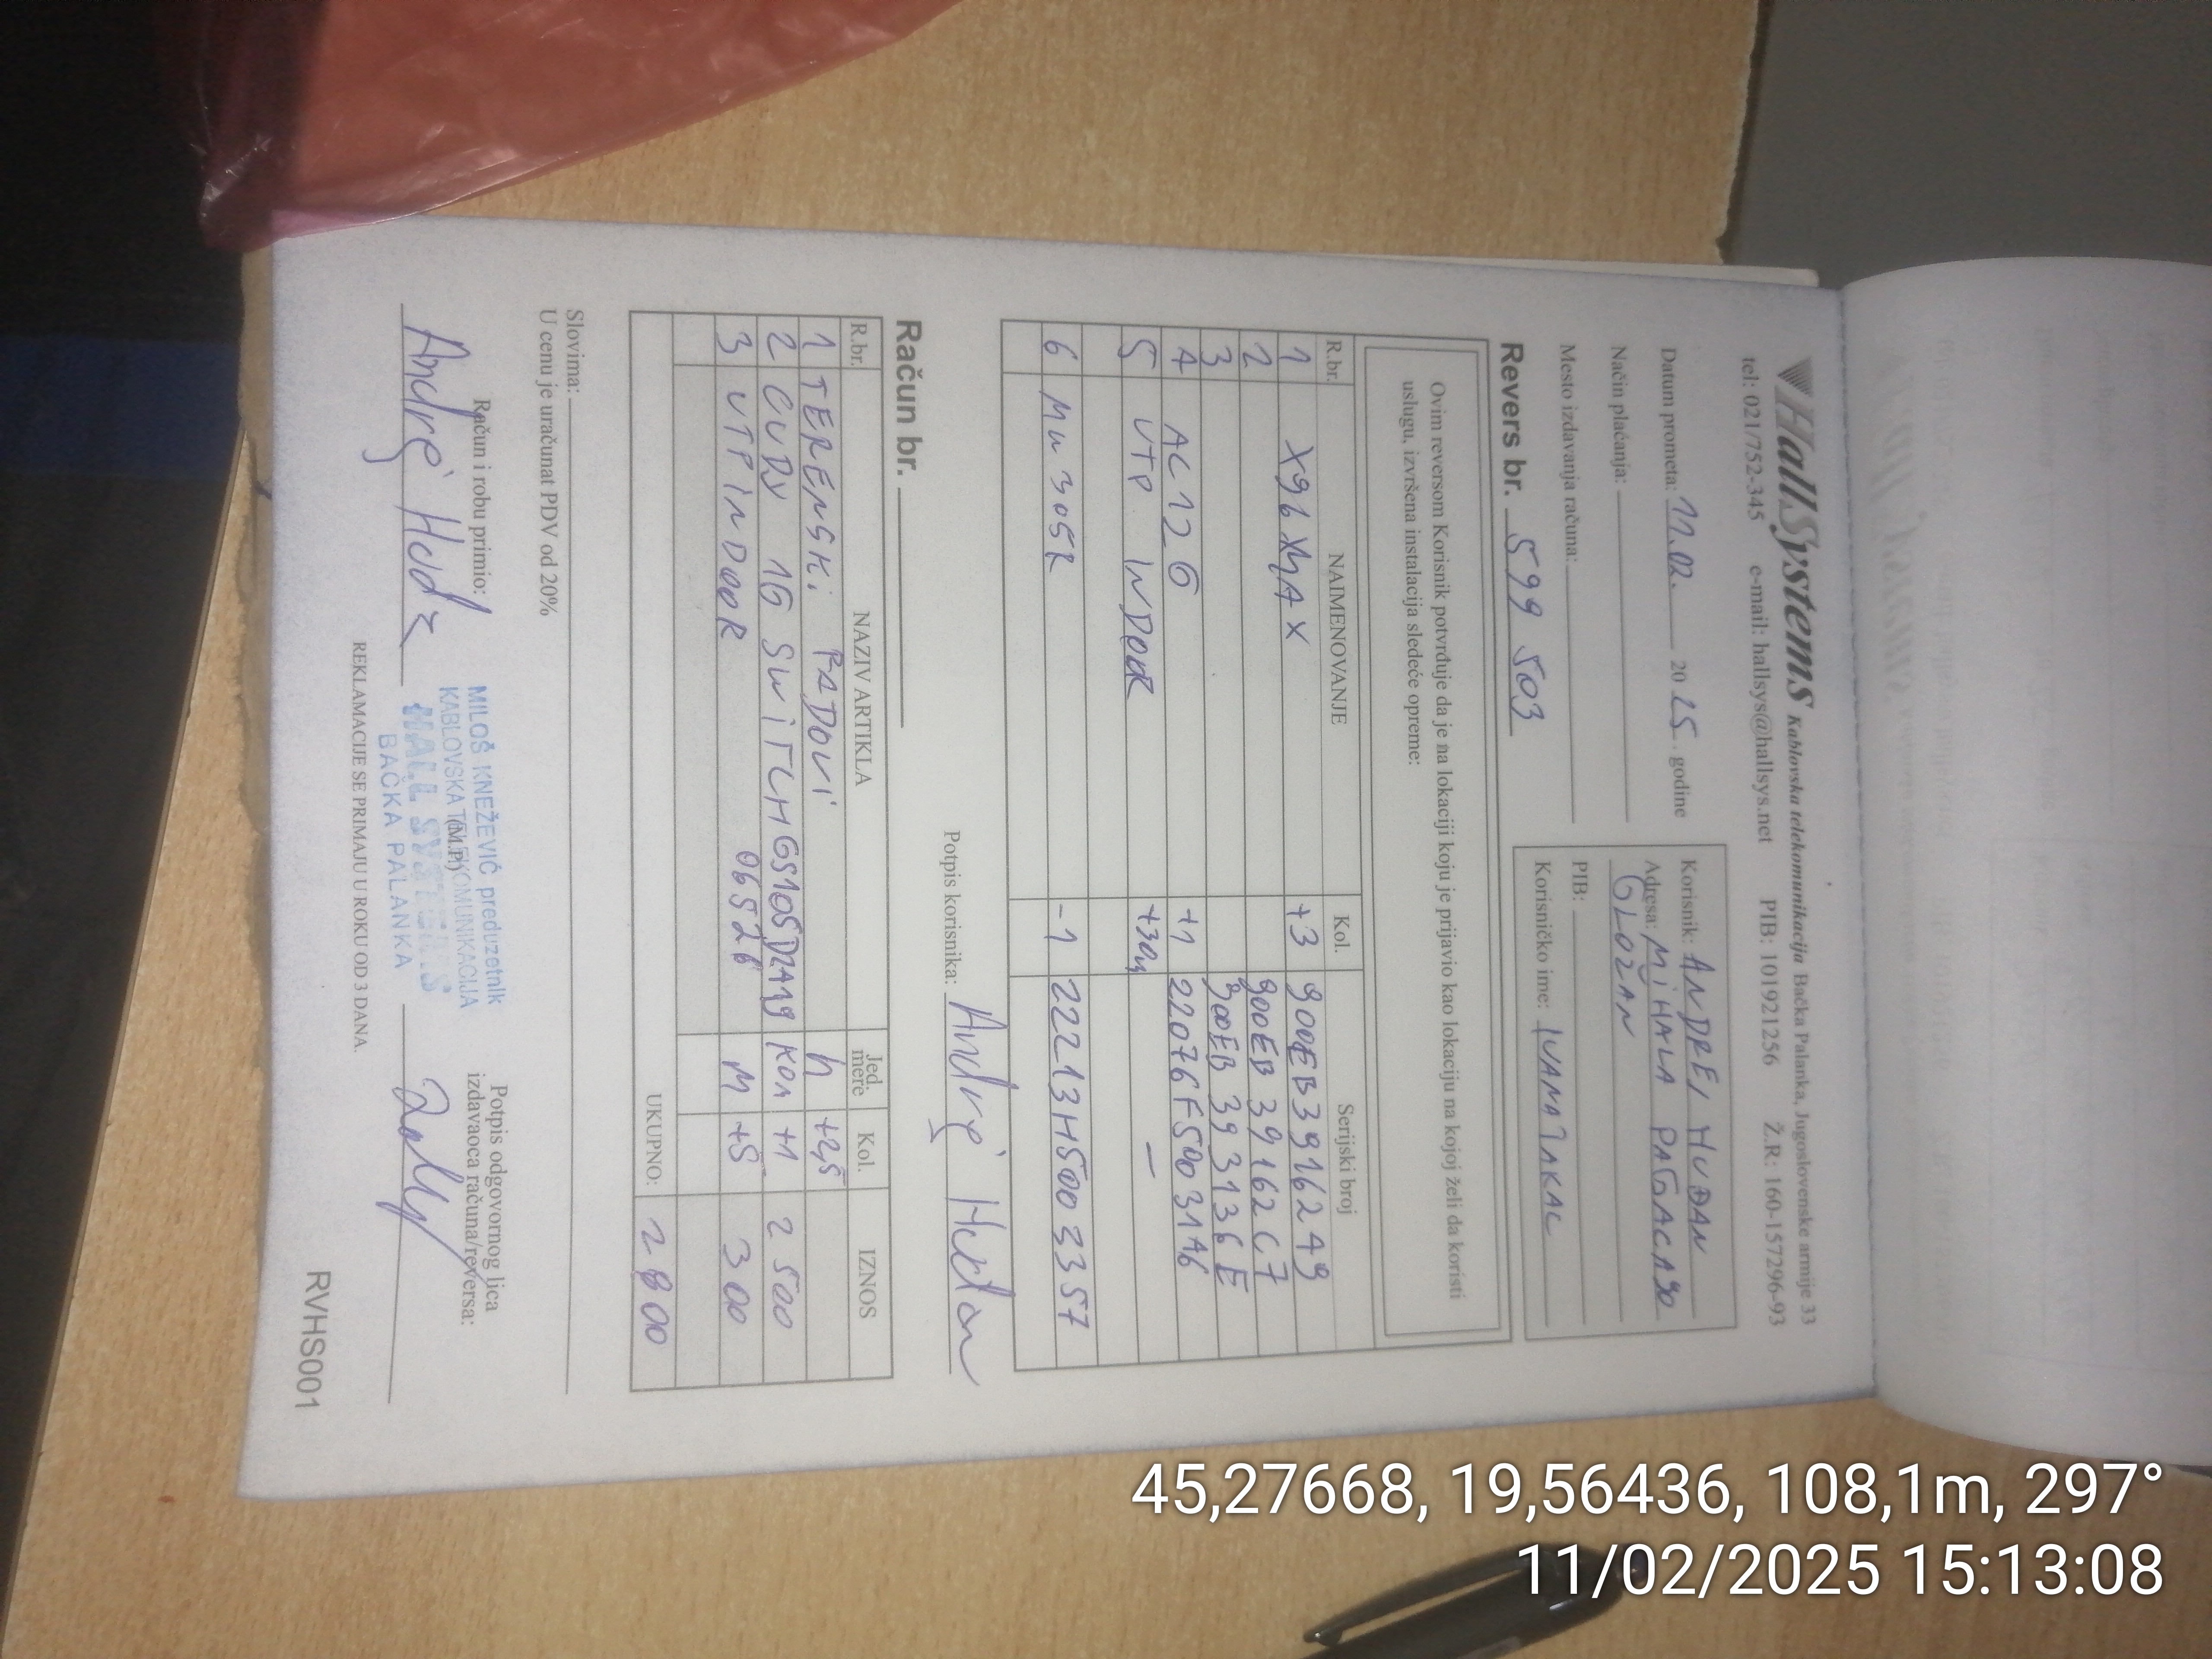 HallSystemS Kablovska telekomunikacija Bačka Palanka, Jugoslovenske armije 33
tel: 021/752-345 e-mail: hallsys@hallsys.net PIB: 101921256 Ž.R: 160-157296-93
Datum prometa: 11.02. 20 25. godine
Način plaćanja:
Mesto izdavanja računa:
Korisnik: ANDREJ HUĐAN
Adresa: MIHALA
GLOŽAN
PIB:
Korisničko ime: IVANATAKAC
Revers br. 599 503
Ovim reversom Korisnik potvrđuje da je na lokaciji koju je prijavio kao lokaciju na kojoj želi da koristi
uslugu, izvršena instalacija sledeće opreme:
R.br. NAIMENOVANJE Kol. Serijski broj
1 X96 MAX +3 900EB3916249
2 900EB39162C7
3 900EB393136E
4 AC12G +1 22076F5003146
5 UTP INDOOR +30m —
6 MW305R -1 22213H5003357
Potpis korisnika: Andrej
Račun br.
R.br. NAZIV ARTIKLA Jed. mere Kol. IZNOS
1 TERENSKI RADOVI h +2,5
2 CUDY 1G SWITCH GS105D2449 KOM +1 2500
06526
3 UTP INDOOR M +5 300
UKUPNO: 2800
Slovima:
U cenu je uračunat PDV od 20%
Račun i robu primio:
Andrej
MILOŠ KNEŽEVIĆ preduzetnik
KABLOVSKA TELEKOMUNIKACIJA
(M.P.)
HALL SYSTEMS
BAČKA PALANKA
Potpis odgovornog lica
izdavaoca računa/reversa:
REKLAMACIJE SE PRIMAJU U ROKU OD 3 DANA.
RVHS001
45,27668, 19,56436, 108,1m, 297°
11/02/2025 15:13:08